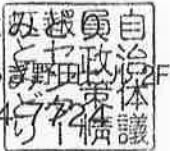 自治体議
員政策情
報センター
みどり
野田ビル2F
4-7724